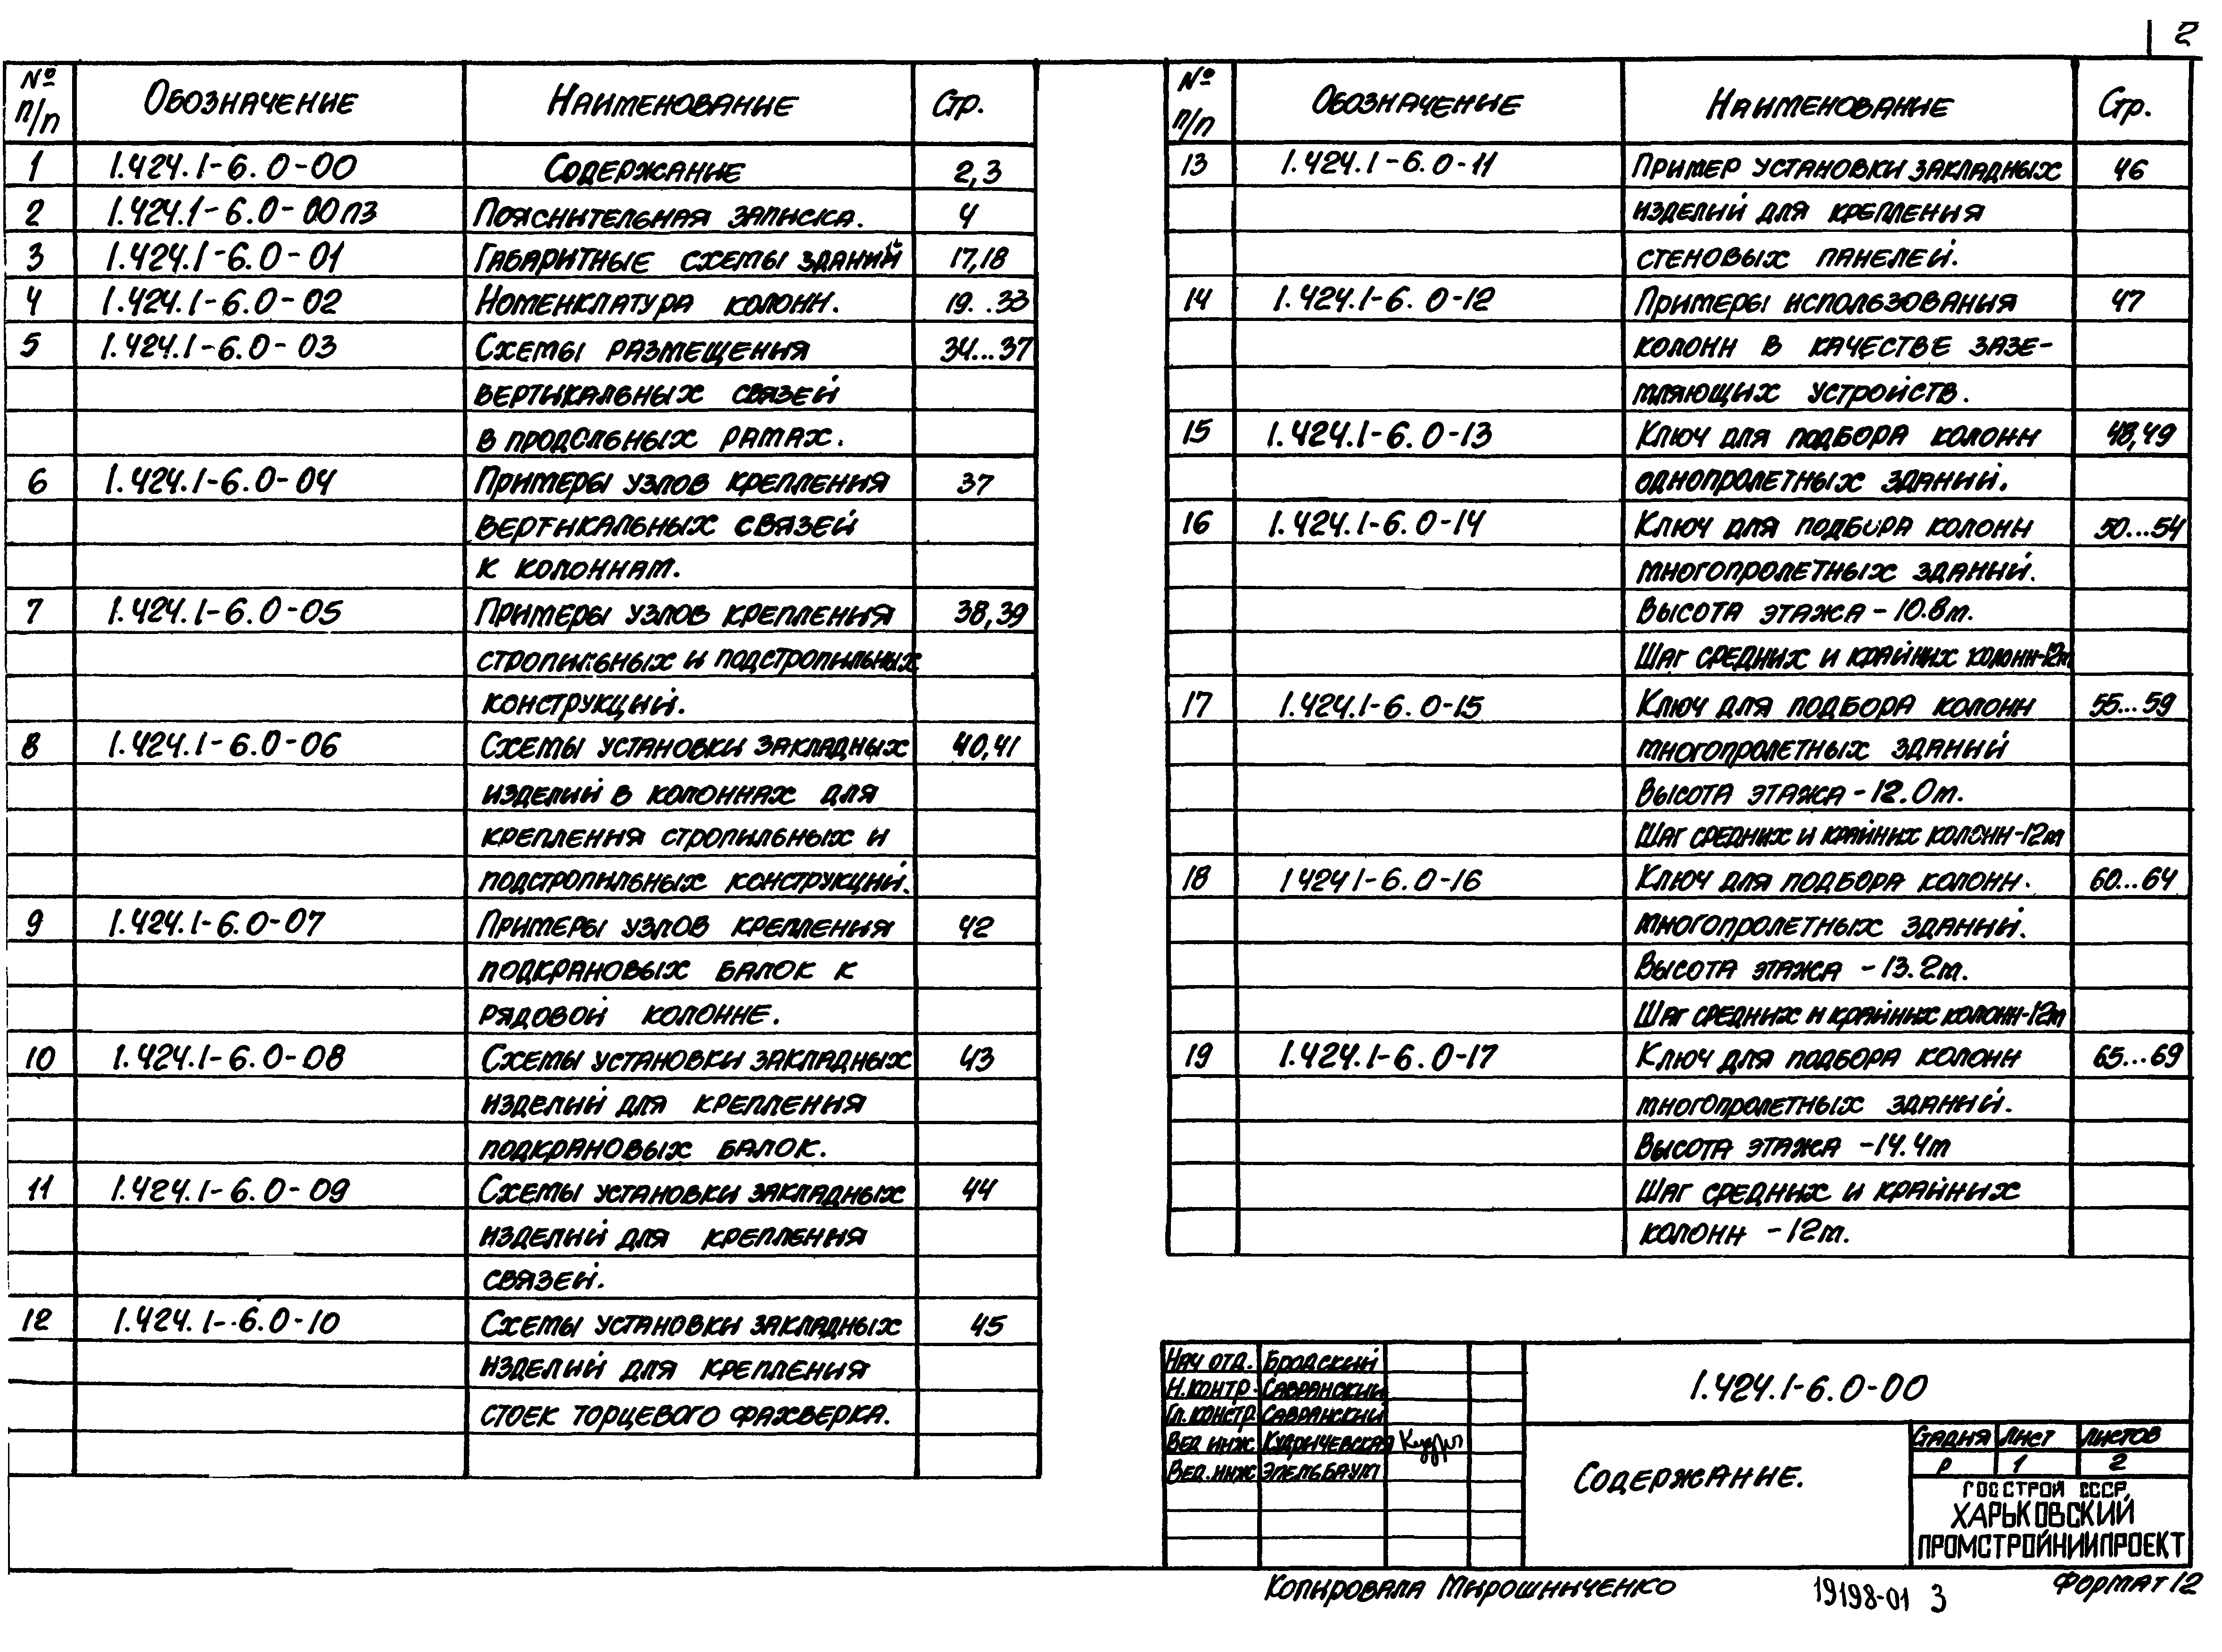 2
№ п/п Обозначение Наименование Стр.
1 1.424.1-6.0-00 Содержание 2,3
2 1.424.1-6.0-00ПЗ Пояснительная записка. 4
3 1.424.1-6.0-01 Габаритные схемы зданий 17,18
4 1.424.1-6.0-02 Номенклатура колонн. 19..33
5 1.424.1-6.0-03 Схемы размещения 34...37
вертикальных связей
в продольных рамах.
6 1.424.1-6.0-04 Примеры узлов крепления 37
вертикальных связей
к колоннам.
7 1.424.1-6.0-05 Примеры узлов крепления 38,39
стропильных и подстропильных
конструкций.
8 1.424.1-6.0-06 Схемы установки закладных 40,41
изделий в колоннах для
крепления стропильных и
подстропильных конструкций.
9 1.424.1-6.0-07 Примеры узлов крепления 42
подкрановых балок к
рядовой колонне.
10 1.424.1-6.0-08 Схемы установки закладных 43
изделий для крепления
подкрановых балок.
11 1.424.1-6.0-09 Схемы установки закладных 44
изделий для крепления
связей.
12 1.424.1-6.0-10 Схемы установки закладных 45
изделий для крепления
стоек торцевого фахверка.
№ п/п Обозначение Наименование Стр.
13 1.424.1-6.0-11 Пример установки закладных 46
изделий для крепления
стеновых панелей.
14 1.424.1-6.0-12 Примеры использования 47
колонн в качестве зазе-
мляющих устройств.
15 1.424.1-6.0-13 Ключ для подбора колонн 48,49
однопролетных зданий.
16 1.424.1-6.0-14 Ключ для подбора колонн 50...54
многопролетных зданий.
Высота этажа - 10.8м.
Шаг средних и крайних колонн-12м
17 1.424.1-6.0-15 Ключ для подбора колонн 55...59
многопролетных зданий
Высота этажа - 12.0м.
Шаг средних и крайних колонн-12м
18 1 424 1-6.0-16 Ключ для подбора колонн. 60...64
многопролетных зданий.
Высота этажа - 13.2м.
Шаг средних и крайних колонн-12м
19 1.424.1-6.0-17 Ключ для подбора колонн 65...69
многопролетных зданий.
Высота этажа - 14.4м
Шаг средних и крайних
колонн - 12м.
Нач отд. Бродский
Н.контр. Савранский
Гл.констр. Савранский
Вед инж Кудричевская Кудри
Вед.инж Эпельбаум
1.424.1-6.0-00
Содержание.
Стадия Лист Листов
Р 1 2
ГОССТРОЙ СССР,
ХАРЬКОВСКИЙ
ПРОМСТРОЙНИИПРОЕКТ
Копировала Мирошниченко 19198-01 3 Формат 12